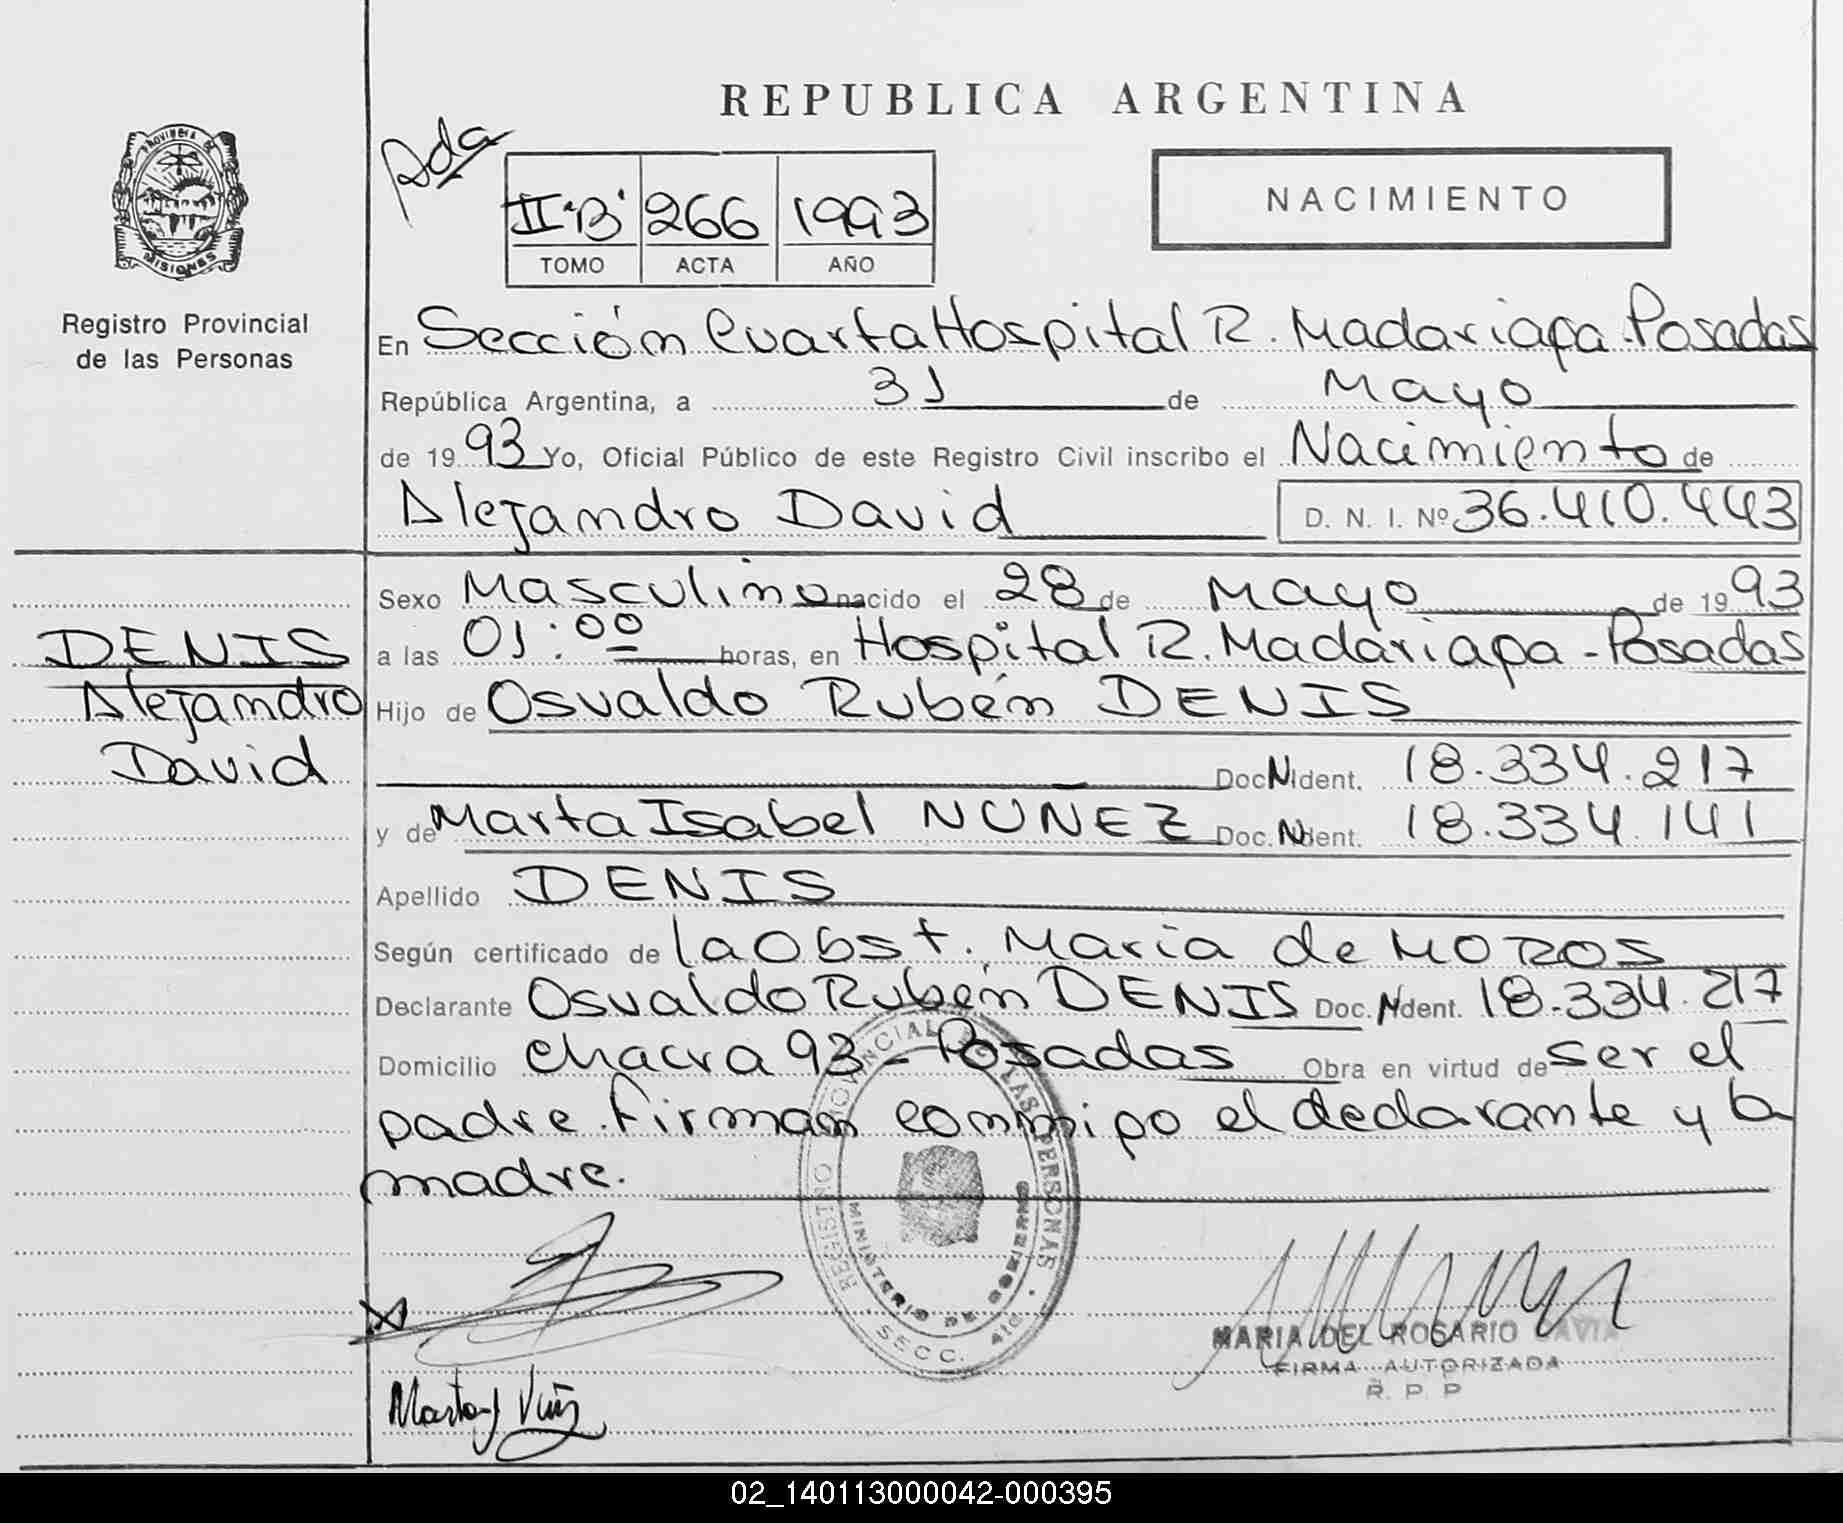 REPUBLICA ARGENTINA
PROVINCIA DE
MISIONES
Registro Provincial
de las Personas
Pda
II "B" 266 1993
TOMO ACTA AÑO
NACIMIENTO
En Sección Cuarta Hospital R. Madariaga - Posadas
República Argentina, a 31 de Mayo
de 1993 Yo, Oficial Público de este Registro Civil inscribo el Nacimiento de
Alejandro David D. N. I. Nº 36.410.443
Sexo Masculino nacido el 28 de Mayo de 1993
a las 01:00 horas, en Hospital R. Madariaga - Posadas
Hijo de Osvaldo Rubén DENIS
Doc N Ident. 18.334.217
y de Marta Isabel NUNEZ Doc. N Ident. 18.334.141
Apellido DENIS
Según certificado de la Obst. Maria de MOROS
Declarante Osvaldo Rubén DENIS Doc. N Ident. 18.334.217
Domicilio Chacra 93 - Posadas Obra en virtud de ser el
padre. Firman conmigo el declarante y la
madre.
DENIS
Alejandro
David
REGISTRO PROVINCIAL DE LAS PERSONAS
MINISTERIO DE GOBIERNO
SECC. 4ta
MARIA DEL ROSARIO
FIRMA AUTORIZADA
R. P. P
02_140113000042-000395